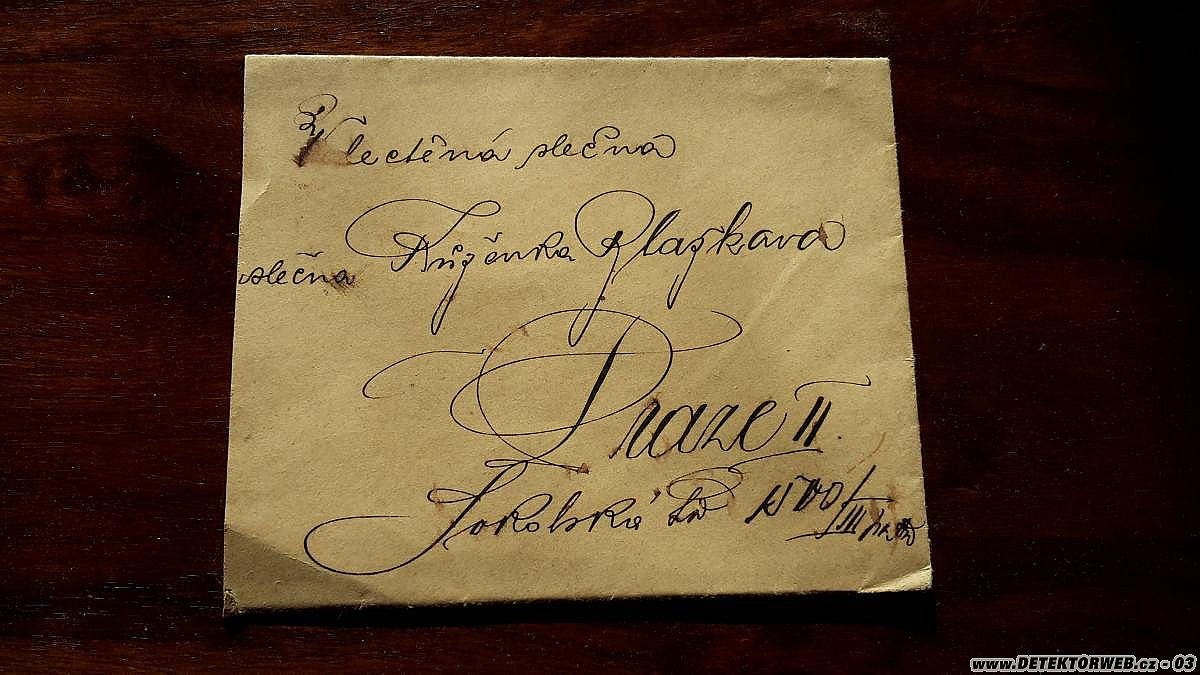 Vlectěná slečna
slečna Růženka Plaškava
Praze II.
Sokolská tř. 1500/III
www.DETEKTORWEB.cz - 03